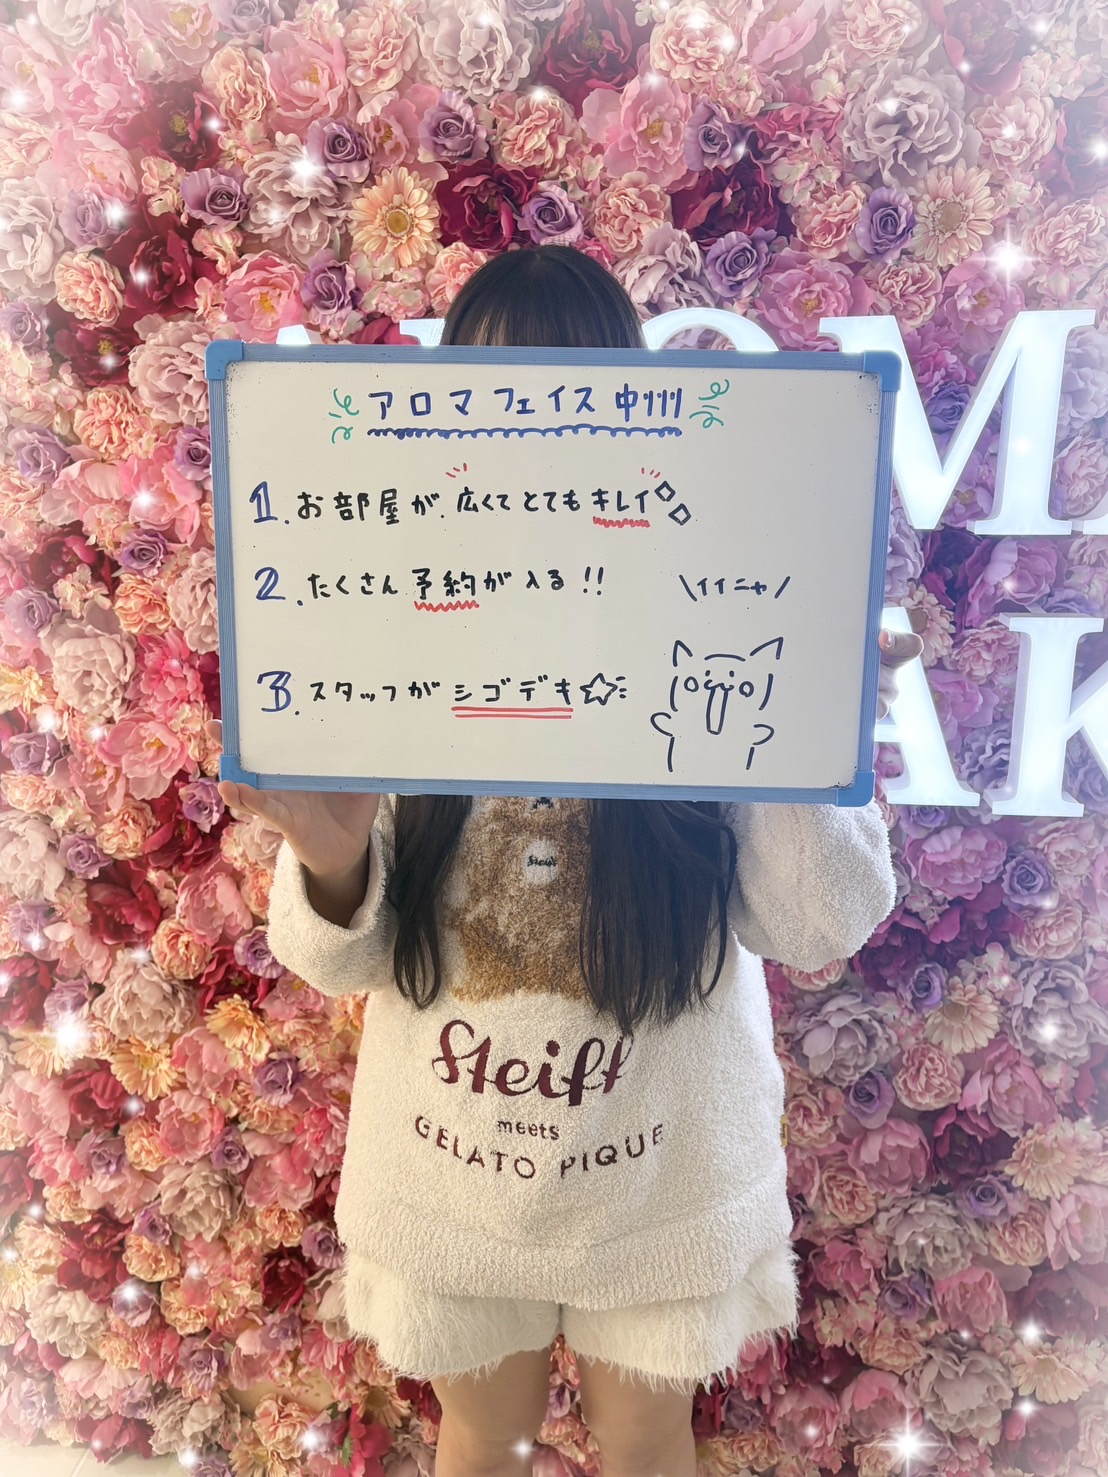 アロマフェイス中州
1.お部屋が広くてとてもキレイ
2.たくさん予約が入る!!
\イイニャ/
3.スタッフがシゴデキ☆
Steiff
Steiff
meets
GELATO PIQUE